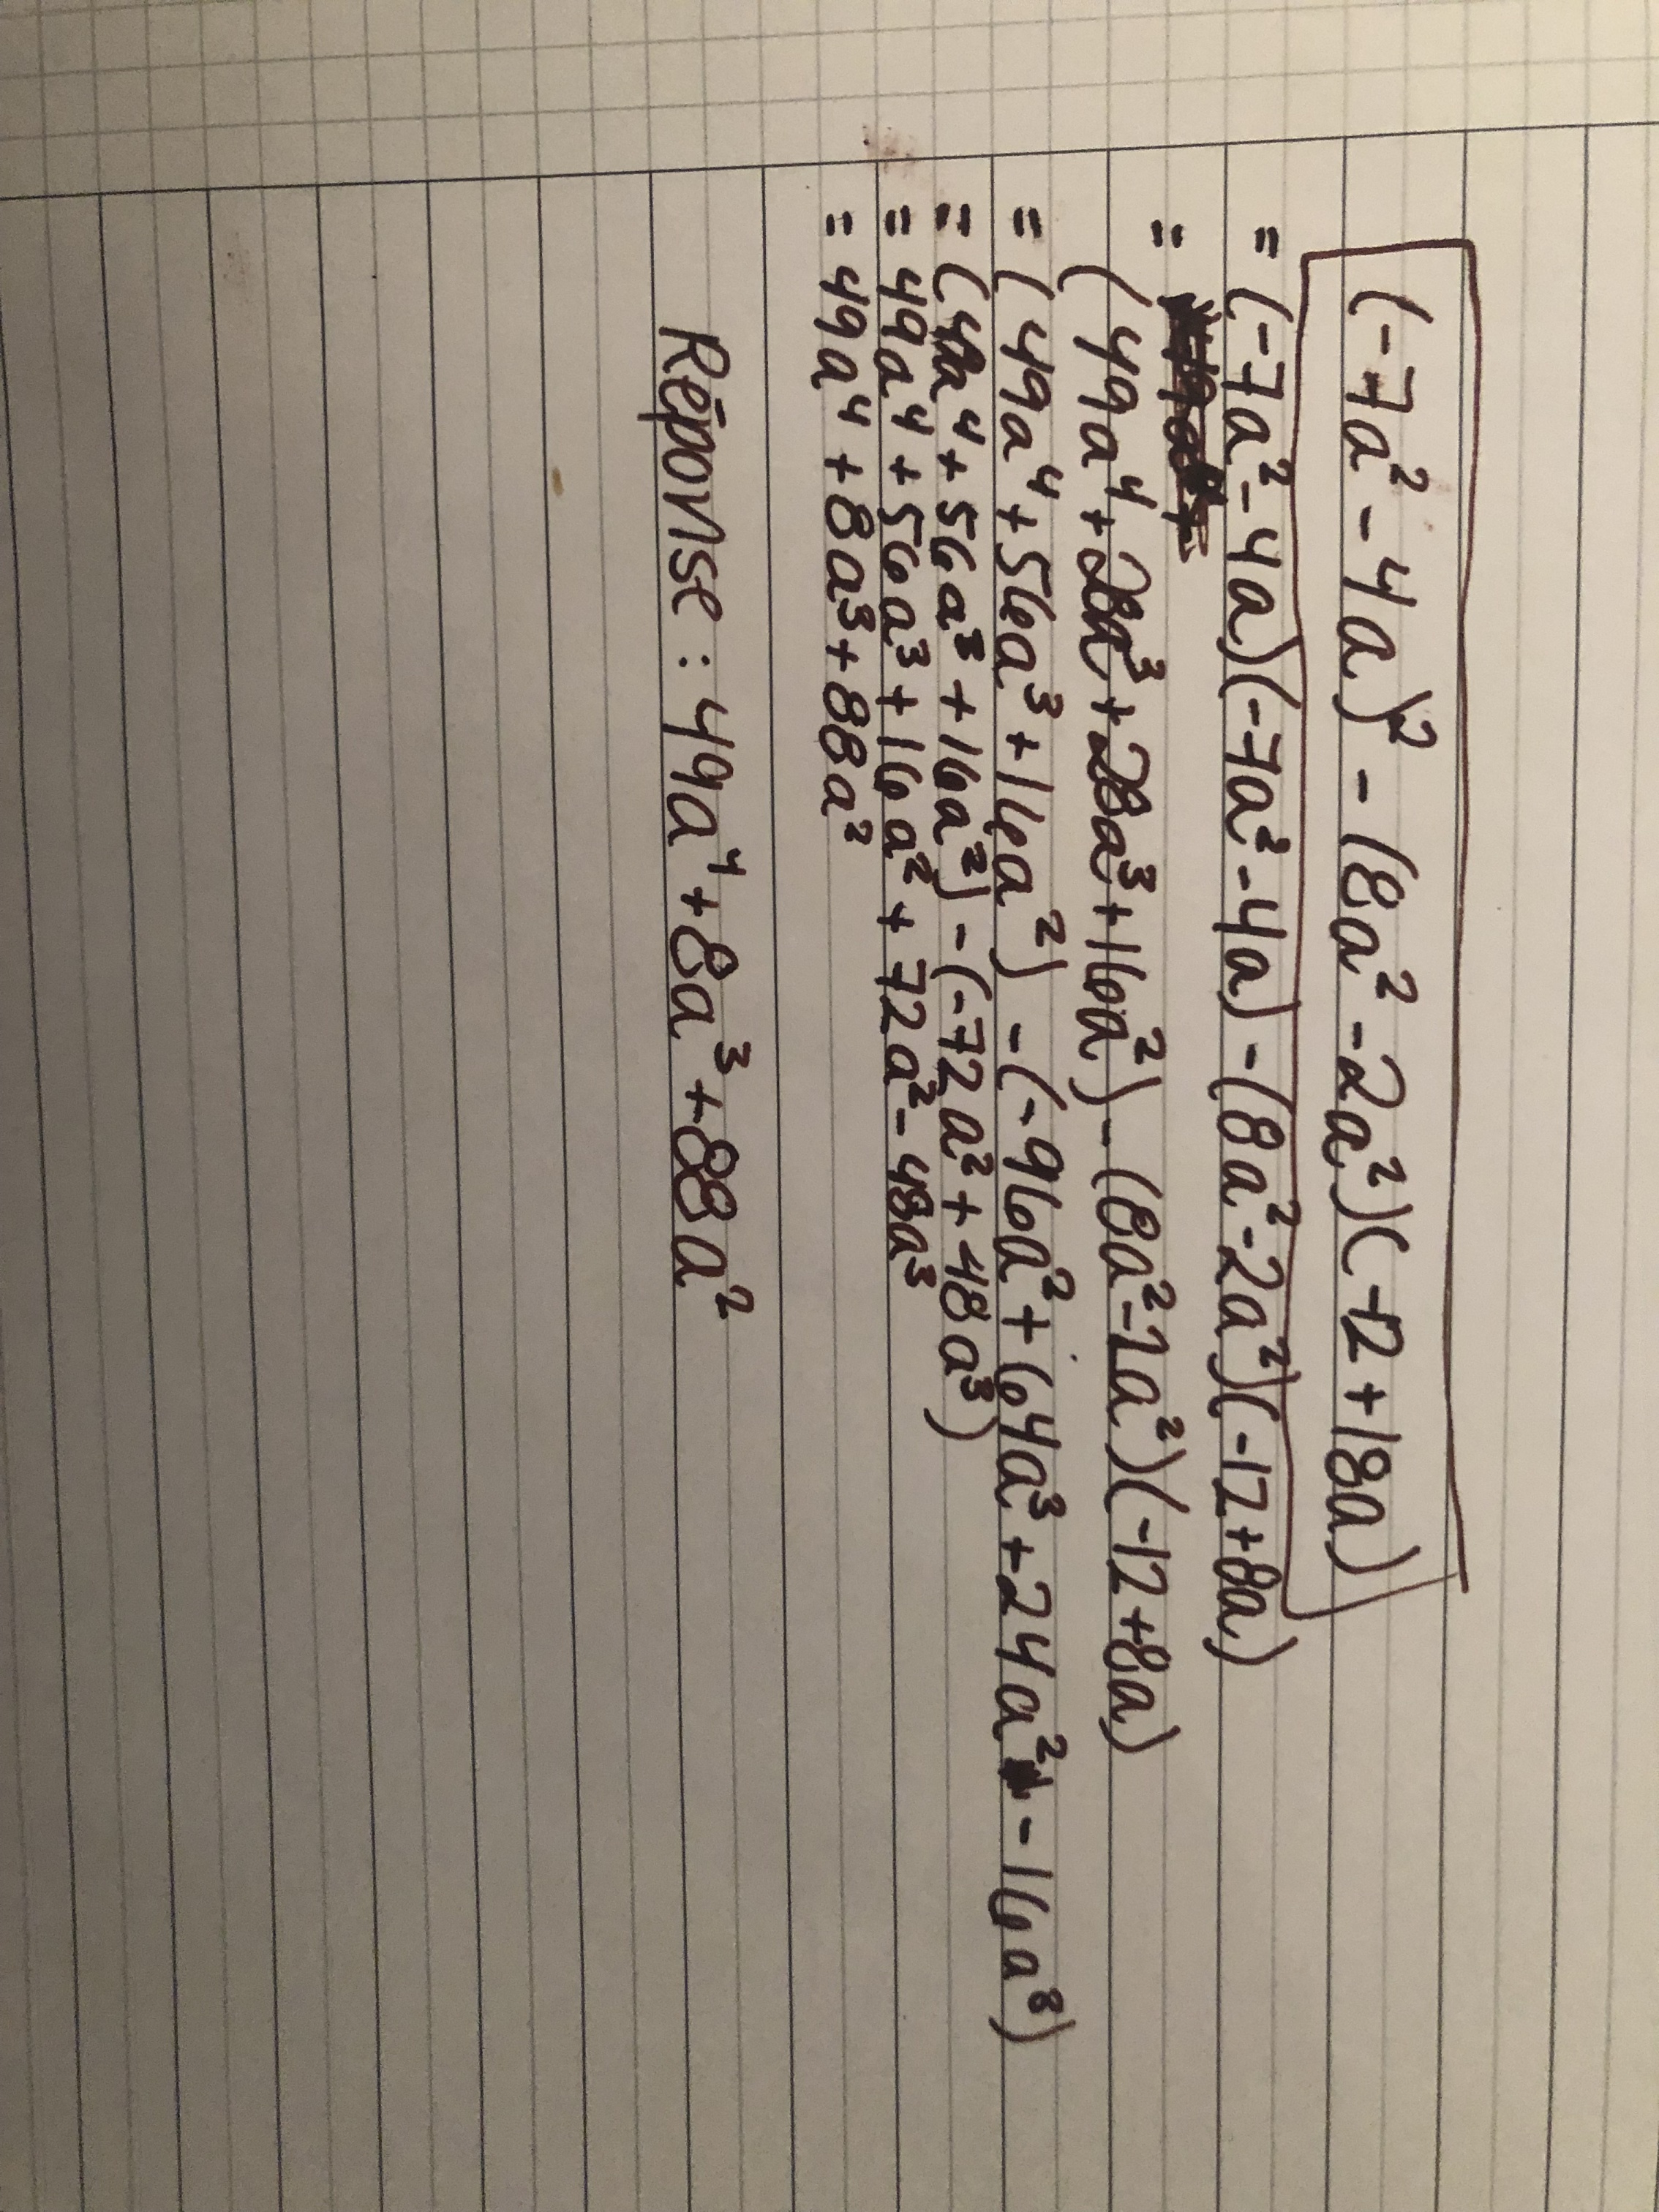 (-7a² - 4a)² - (8a² - 2a²)(-12 + 18a)
= (-7a² - 4a)(-7a² - 4a) - (8a² - 2a²)(-12 + 8a)
=
(49a⁴ + 28a³ + 28a³ + 16a²) - (8a² - 2a²)(-12 + 8a)
= (49a⁴ + 56a³ + 16a²) - (-96a² + 64a³ + 24a² - 16a³)
= (49a⁴ + 56a³ + 16a²) - (-72a² + 48a³)
= 49a⁴ + 56a³ + 16a² + 72a² - 48a³
= 49a⁴ + 8a³ + 88a²
Réponse : 49a⁴ + 8a³ + 88a²